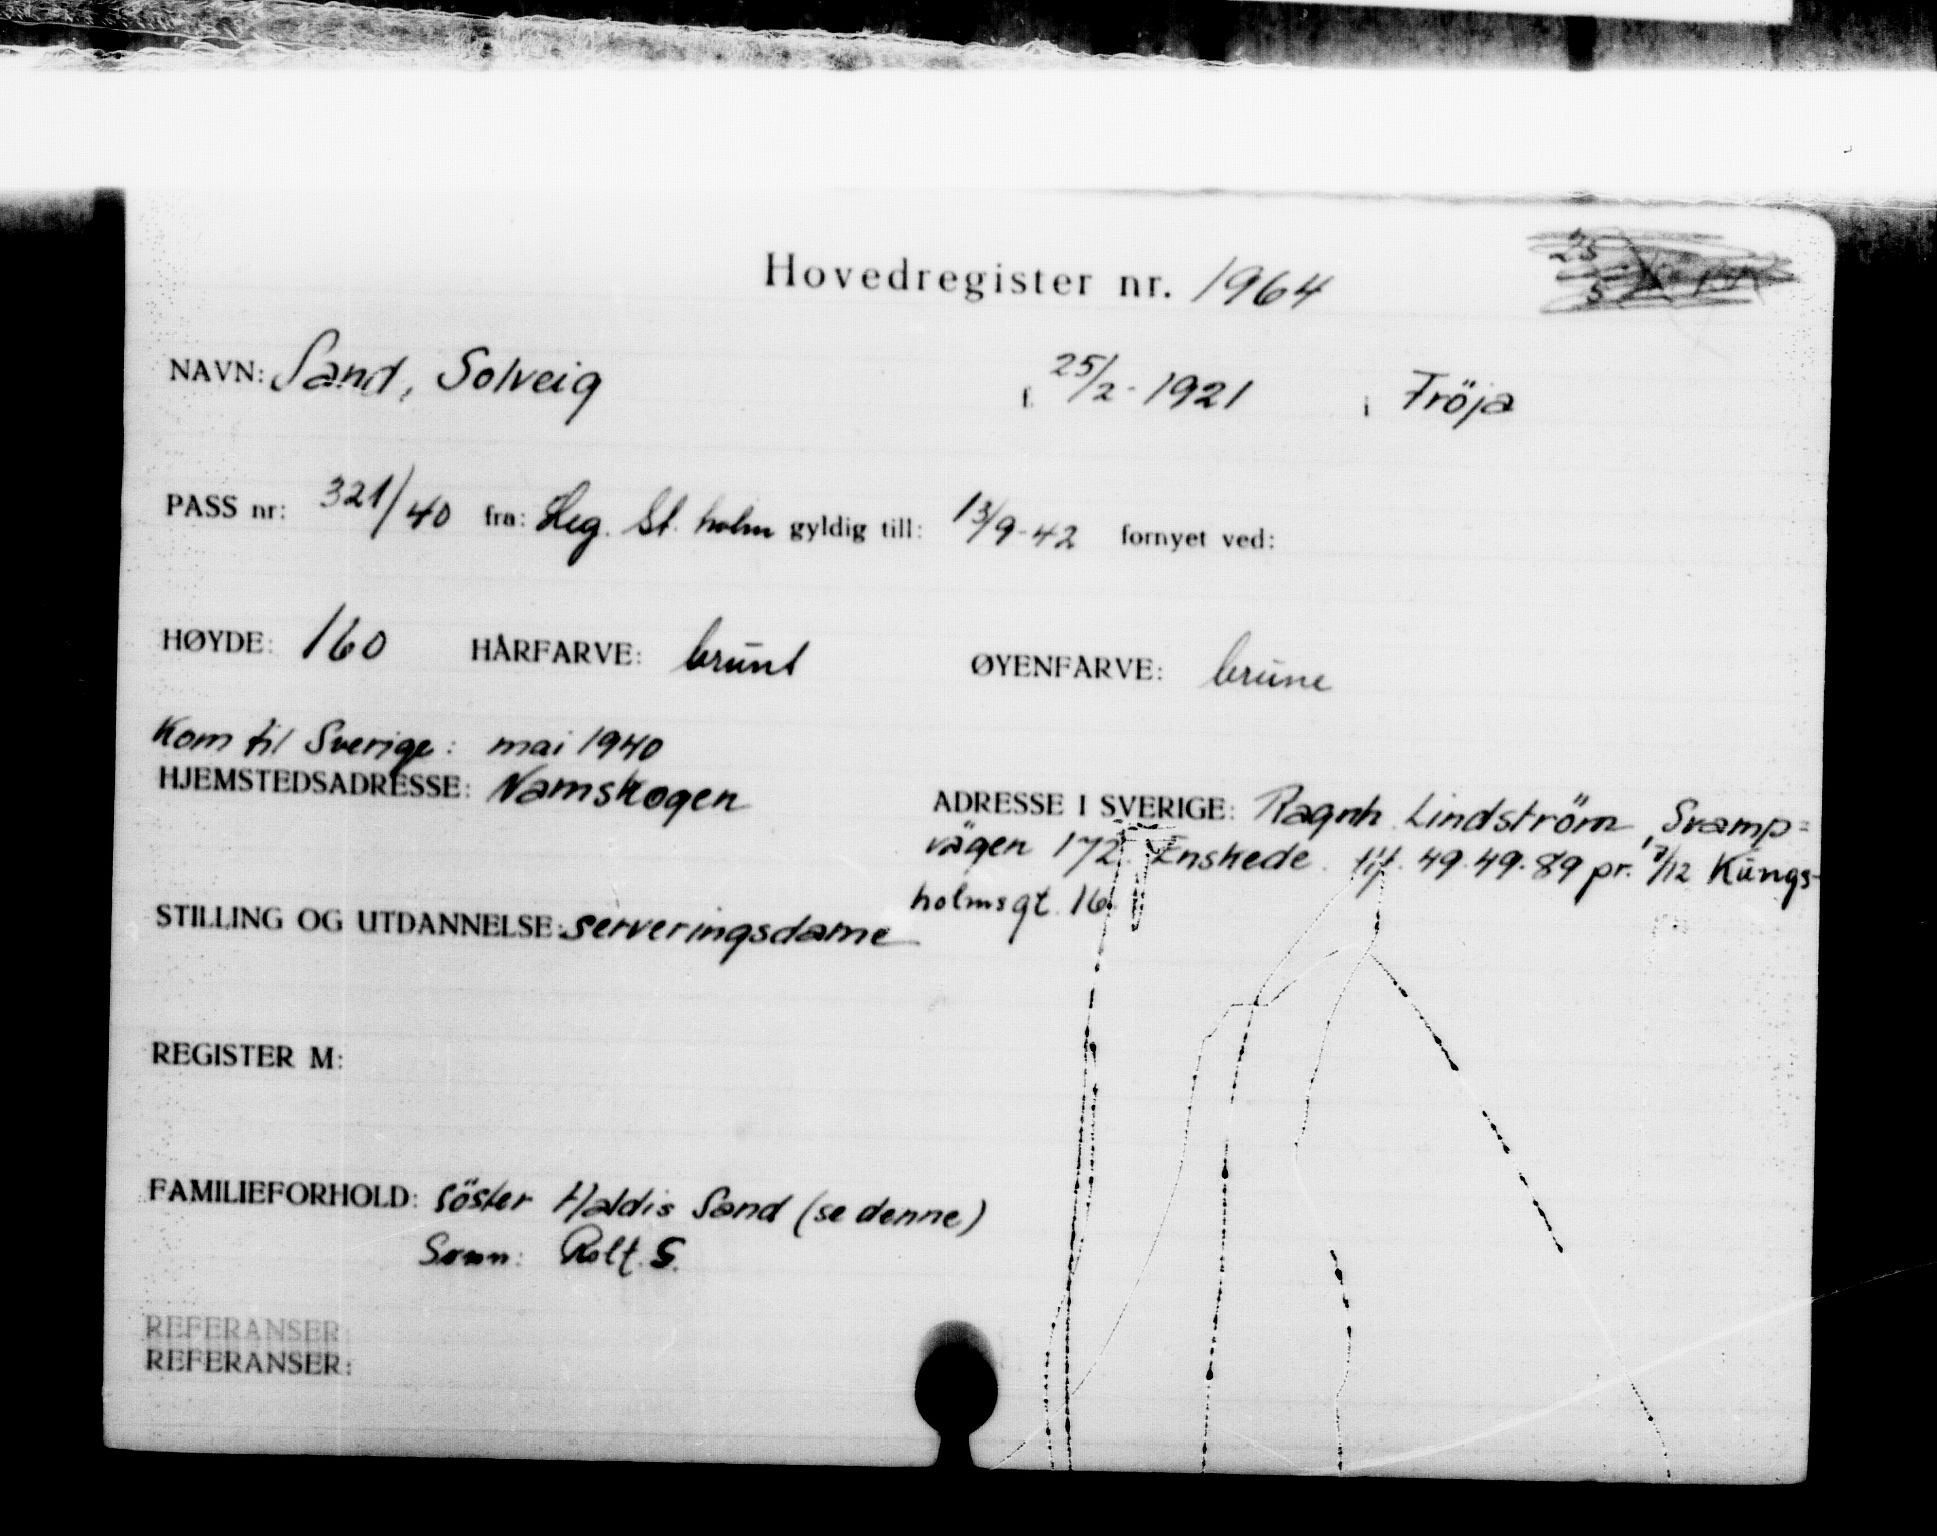 Hovedregister nr. 1964
NAVN: Sand, Solveig f. 25/2-1921 i Fröja
PASS nr: 321/40 fra: Leg. St.holm gyldig till: 13/9-42 fornyet ved:
HØYDE: 160 HÅRFARVE: brunt ØYENFARVE: brune
Kom til Sverige: mai 1940
HJEMSTEDSADRESSE: Namskogen
ADRESSE I SVERIGE: Ragnh. Lindström, Svamp=
vägen 172. Enskede. tlf. 49.49.89 pr. 17/12 Kungs-
holmsgt. 16.
STILLING OG UTDANNELSE: serveringsdame
REGISTER M:
FAMILIEFORHOLD: söster Haldis Sand (se denne)
Sønn: Rolf. S.
REFERANSER:
REFERANSER: